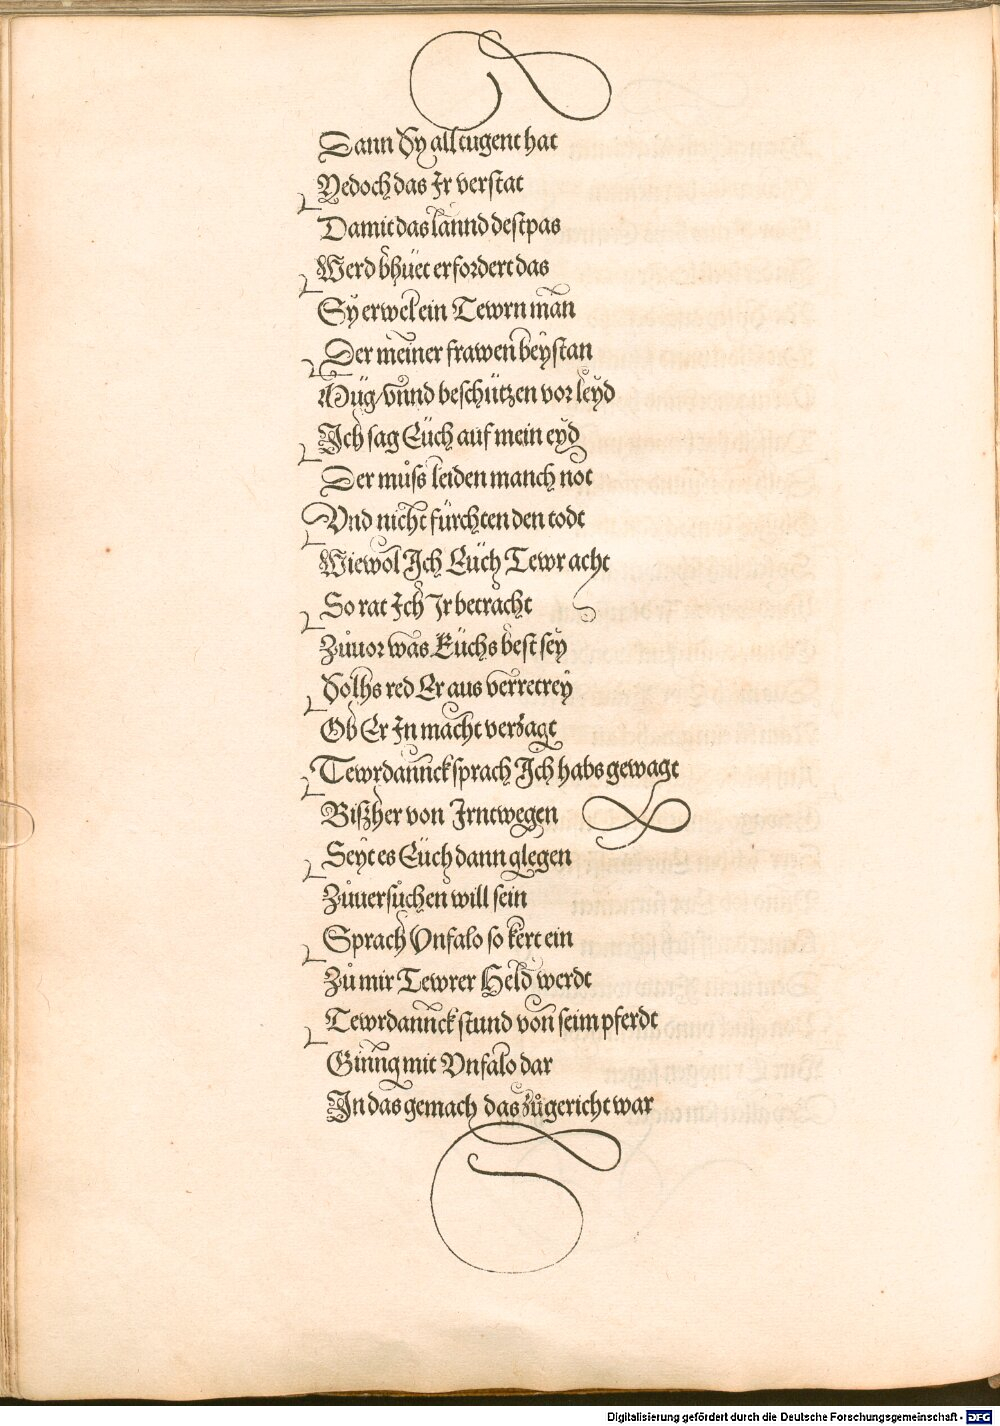 Dann Sy all tugent hat
Yedoch das Ir verstat
Damit das lannd destpas
Werd bhüet erfordert das
Sy erwel ein Tewrn man
Der meiner frawen beystan
Müg/ vnnd beschützen vor leyd
Ich sag Eüch auf mein eyd
Der můſs leiden manch not
Vnd nicht fürchten den todt
Wiewol Ich Eüch Tewr acht
So rat Ich Ir betracht
Zůuor was Eüchs best sey
Solhs red Er aus verretrey
Ob Er In macht verzagt
Tewrdannck sprach Ich habs gewagt
Biſzher von Irntwegen
Seyt es Eüch dann glegen
Zůuersůchen will sein
Sprach Vnfalo so kert ein
Zů mir Tewrer Held werdt
Tewrdannck stund von seim pferdt
Ginng mit Vnfalo dar
In das gemach das zůgericht war
Digitalisierung gefördert durch die Deutsche Forschungsgemeinschaft - DFG